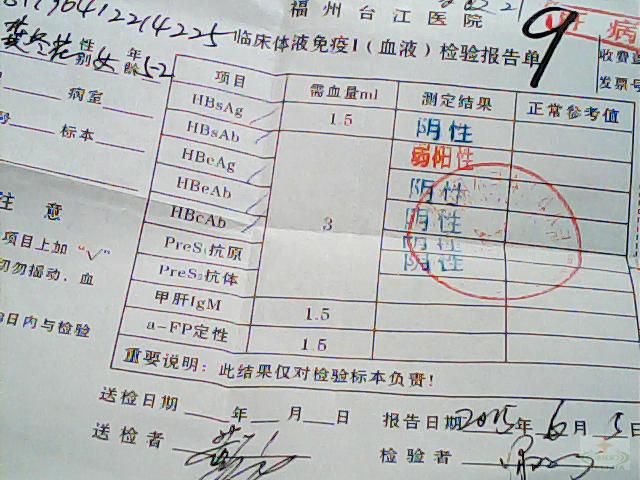 福州台江医院
412214225 临床体液免疫I（血液）检验报告单 9
性别 女 年龄 52
收费
发票号
病室
标本
项目 需血量ml 测定结果 正常参考值
HBsAg 1.5 阴性
HBsAb 弱阳性
HBeAg 阴性
HBeAb 3 阴性
HBcAb 阴性
PreS1抗原 阴性
PreS2抗体
甲肝IgM 1.5
a-FP定性 1.5
重要说明：此结果仅对检验标本负责！
注意
项目上加“√”
勿摇动，血
日内与检验
送检日期 年 月 日 报告日期 2015年6月5日
送检者 检验者